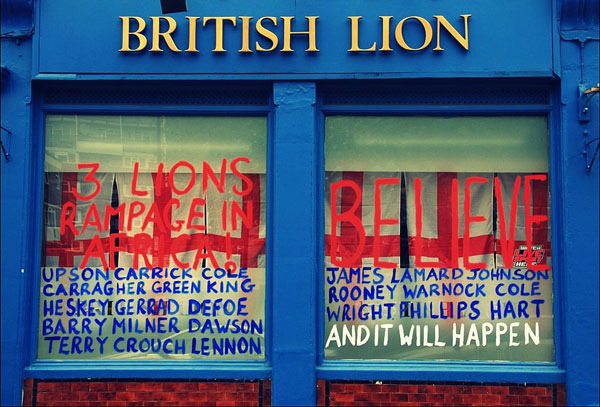 BRITISH LION
3 LIONS
RAMPAGE IN
AFRICA!
UPSON CARRICK COLE
CARRAGHER GREEN KING
HESKEY GERRAD DEFOE
BARRY MILNER DAWSON
TERRY CROUCH LENNON
BELIEVE
JAMES LAMARD JOHNSON
ROONEY WARNOCK COLE
WRIGHT PHILLIPS HART
AND IT WILL HAPPEN